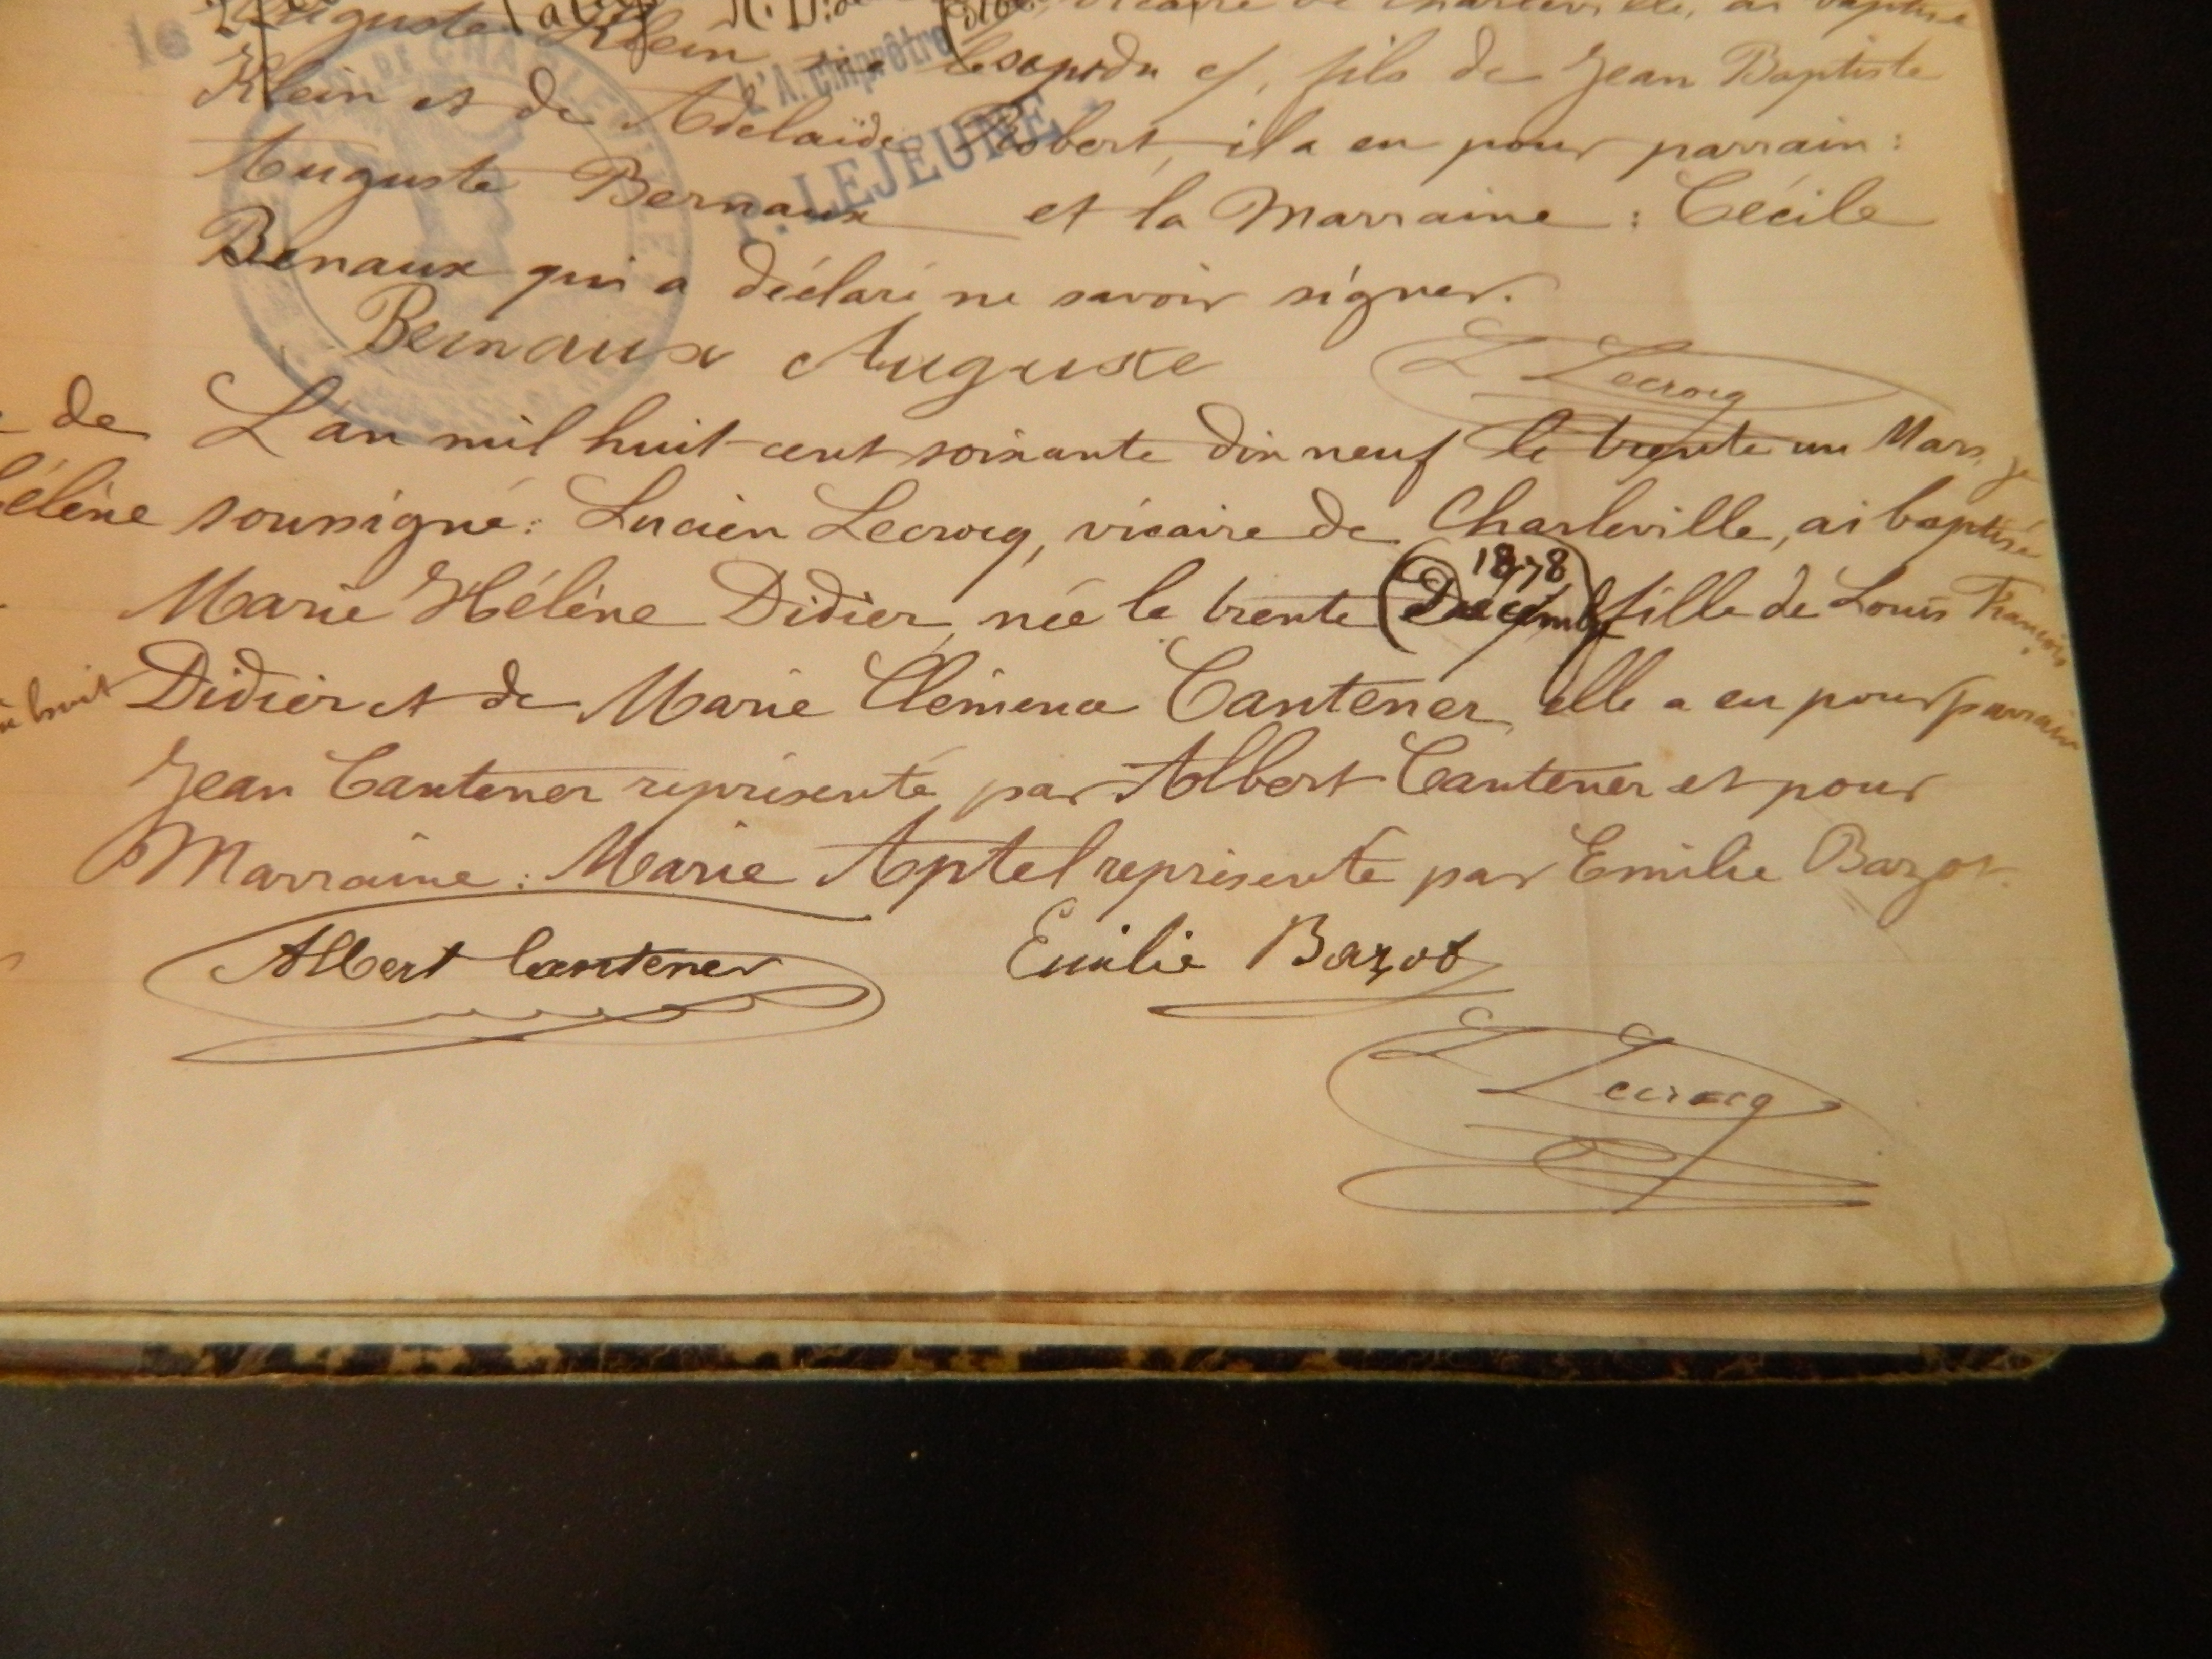 Auguste Klein
Klein et de Adelaïde Robert, il a eu pour parrain :
fils de Jean Baptiste
Auguste Bernaux et la Marraine : Cécile
Benaux qui a déclaré ne savoir signer.
Bernaux Auguste
L Lecrocq
P. LEJEUNE
L'Archiprêtre
de
L'an mil huit-cent soixante dix neuf le trente un Mars, je
élène
soussigné : Lucien Lecrocq, vicaire de Charleville, ai baptisé
1878
Marie Hélène Didier, née le trente (Décembre) fille de Louis François
huit
Didier et de Marie Clémence Cantener, elle a eu pour parrain
Jean Cantener représenté par Albert Cantener et pour
Marraine : Marie Aptel représenté par Emilie Bazot.
Albert Cantener Emilie Bazot
L Lecrocq